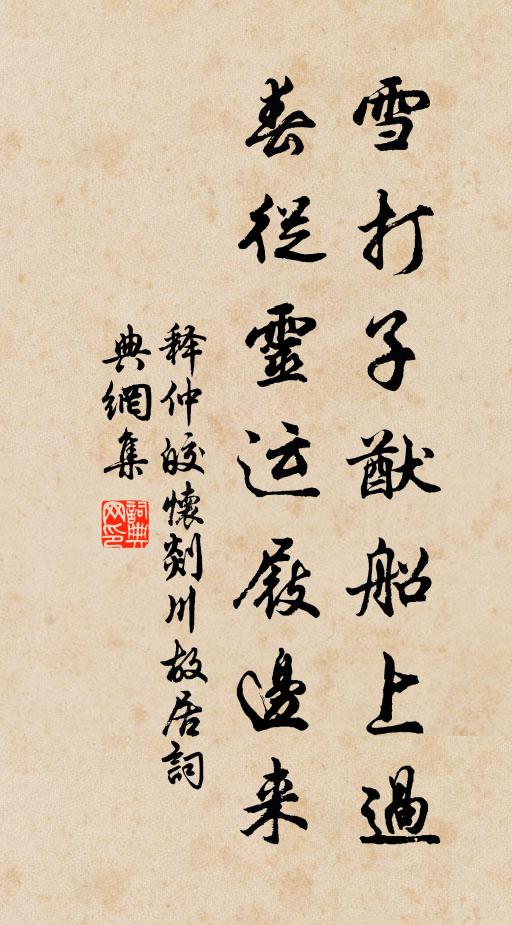 雪打子猷船上過
春從靈运屐邊来
释仲皎懷剡川故居詞
典網集
詞典网印